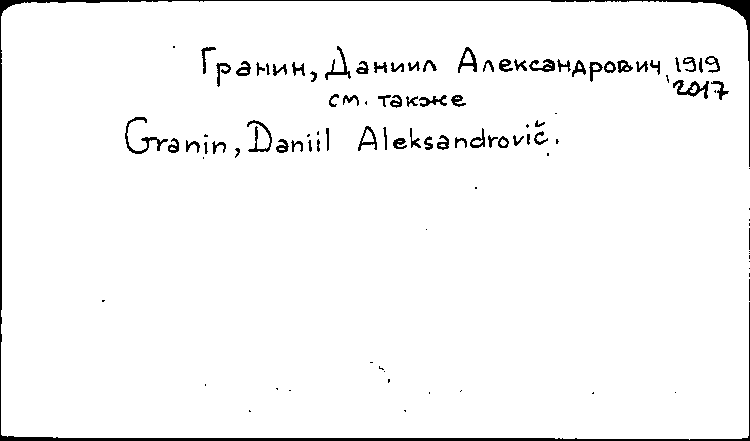 Гранин, Даниил Александрович, 1919
2017
см. также
Granin, Daniil Aleksandrovič.